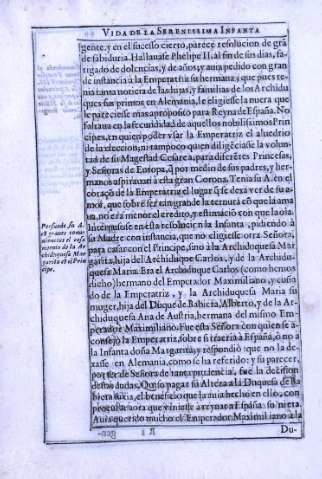 VIDA DE LA SERENISSIMA INFANTA
gente, y en el sucesso cierto, parece resolucion de grã
de sabiduria. Hallauase Phelipe II. al fin de sus dias, fa-
tigado de dolencias, y de años; y auia pedido con gran
de instancia à la Emperatriz su hermana; que pues te-
nia tanta noticia de las hijas, y familias de los Archidu
ques sus primos en Alemania, le eligiesse la nuera que
le pareciesse mas aproposito para Reyna de España. No
faltaua en la fecundidad de aquellos nobilissimos Prin
cipes, en quien poder vsar la Emperatriz el aluedrio
de la eleccion; ni tampoco quien diligēciasse la volun-
tad de su Magestad Cesarea, para diferētes Princesas,
y Señoras de Europa, q̃ por medio de sus padres, y her-
manos aspirauan à esta gran Corona. Tenia S. A. en el
coraçõ de la Emperatriz el lugar q̃ se dexa ver de su a-
mor, que sobre ser tan grande la ternura cõ que la ama
ua, no era menor el credito, y estimaciõ con que la oía.
Introduxose en esta resolucion la Infanta, pidiendo à
su Madre con instancia, que no eligiesse otra Señora,
para casar con el Principe, sino à la Archiduquesa Mar
garita, hija del Archiduque Carlos, y de la Archidu-
quesa Maria. Era el Archiduque Carlos (como hemos
dicho) hermano del Emperador Maximiliano, y cuña
do de la Emperatriz, y la Archiduquesa Maria su
muger, hija del Duque de Babiera, Alberto, y de la Ar-
chiduquesa Ana de Austria, hermana del mismo Em-
perador Maximiliano. Fue esta Señora con quien se a-
consejò la Emperatriz, sobre si traeria à España, ò no a
la Infanta doña Margarita; y respondiò que no la de-
xasse en Alemania, como se ha referido: y su parecer,
por ser de Señora de tanta prudencia, fue la decision
destas dudas. Quiso pagar su Alteza à la Duquesa de Ba
biera su tia, el beneficio que la auia hecho en ello, con
procurar aora que viniesse à reynar a España su nieta.
Auia querido mucho el Emperador Maximiliano à la
Persuade su A.
Principe.
Du-